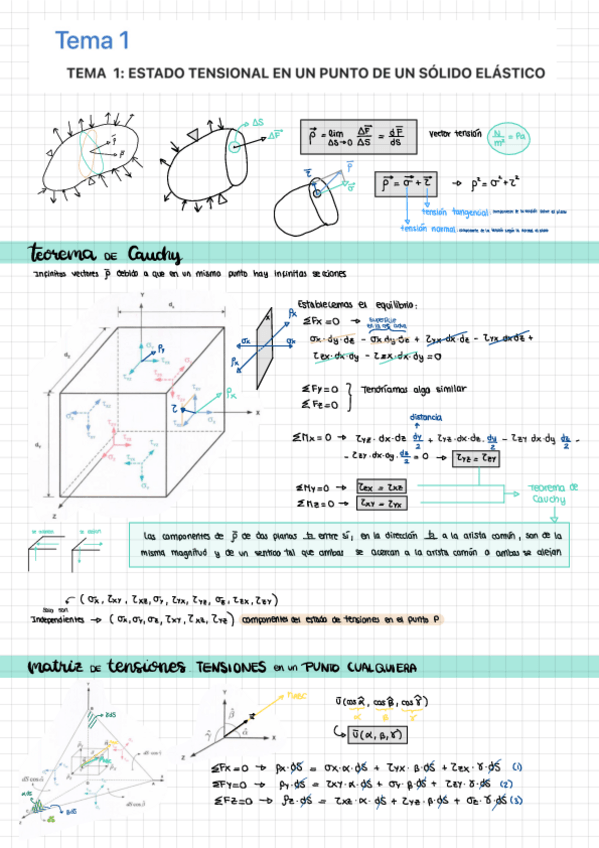 Tema 1
TEMA 1: ESTADO TENSIONAL EN UN PUNTO DE UN SÓLIDO ELÁSTICO
ΔS
ΔF
ρ⃗ = lim ΔS→0 ΔF/ΔS = dF/dS
Vector tensión
N/m² = Pa
ρ⃗ = σ⃗ + τ⃗ → ρ² = σ² + τ²
tensión tangencial:
tensión normal:
teorema DE Cauchy
Infinitos vectores ρ⃗ debido a que en un mismo punto hay infinitas secciones
Establecemos el equilibrio:
ΣFx = 0 →
σx·dy·dz - σx·dy·dz + τyx·dx·dz - τyx·dx·dz +
τzx·dx·dy - τzx·dx·dy = 0
ΣFy = 0
ΣFz = 0
Tendríamos algo similar
distancia
ΣMx = 0 → τyz·dx·dz dy/2 + τyz·dx·dz·dy/2 - τzy·dx·dy·dz/2 -
- τzy·dx·dy·dz/2 = 0 → τyz = τzy
ΣMy = 0 → τzx = τxz
ΣMz = 0 → τxy = τyx
Teorema de Cauchy
Las componentes de ρ⃗ de dos planos ⊥ entre sí, en la dirección ⊥ a la arista común, son de la
misma magnitud y de un sentido tal que ambas se acercan a la arista común o ambas se alejan
(σx, τxy, τxz, σy, τyx, τyz, σz, τzx, τzy)
Solo son
Independientes → (σx, σy, σz, τxy, τxz, τyz) componentes del estado de tensiones en el punto P
matriz DE tensiones. TENSIONES en un PUNTO CUALQUIERA
ū(cos α̂, cos β̂, cos γ̂)
α β γ
ū(α, β, γ)
ΣFx = 0 → ρx·dS = σx·α·dS + τyx·β·dS + τzx·γ·dS (1)
ΣFy = 0 → ρy·dS = τxy·α·dS + σy·β·dS + τzy·γ·dS (2)
ΣFz = 0 → ρz·dS = τxz·α·dS + τyz·β·dS + σz·γ·dS (3)